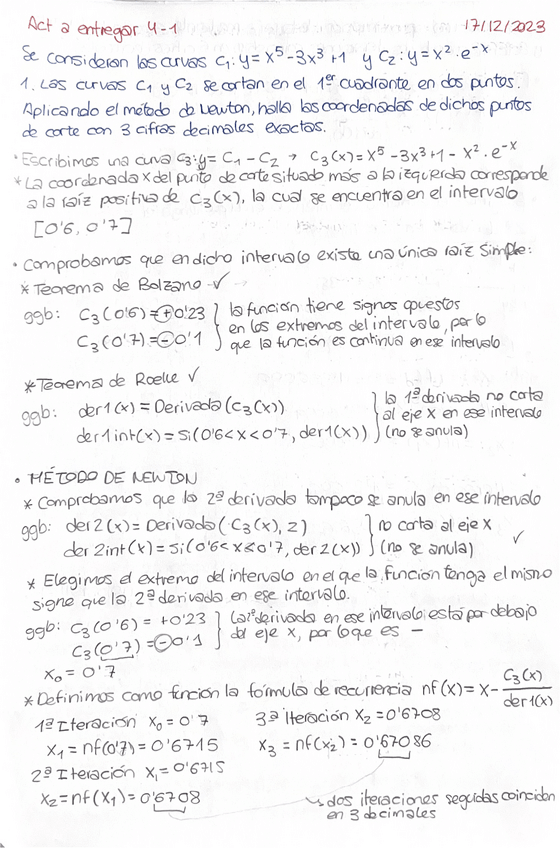 Act a entregar 4-1 17/12/2023
Se consideran las curvas C₁: y = x⁵-3x³+1 y C₂: y = x²·e⁻ˣ
1. Las curvas C₁ y C₂ se cortan en el 1er cuadrante en dos puntos.
Aplicando el método de Newton, halla las coordenadas de dichos puntos
de corte con 3 cifras decimales exactas.
· Escribimos una curva C₃: y = C₁ - C₂ → C₃(x) = x⁵-3x³+1 - x²·e⁻ˣ
* La coordenada x del punto de corte situado más a la izquierda corresponde
a la raíz positiva de C₃(x), la cual se encuentra en el intervalo
[0'6, 0'7]
· Comprobamos que en dicho intervalo existe una única raíz simple:
* Teorema de Bolzano ✓
ggb: C₃(0'6) = +0'23 } la función tiene signos opuestos
C₃(0'7) = -0'1 en los extremos del intervalo, por lo
que la función es continua en ese intervalo
* Teorema de Roelle ✓
ggb: der1(x) = Derivada(C₃(x)) } la 1ª derivada no corta
al eje x en ese intervalo
der1int(x) = Si(0'6<x<0'7, der1(x)) (no se anula)
· MÉTODO DE NEWTON
* Comprobamos que la 2ª derivada tampoco se anula en ese intervalo
ggb: der2(x) = Derivada(C₃(x), 2) } no corta al eje x
der2int(x) = Si(0'6<x<0'7, der2(x)) (no se anula) ✓
* Elegimos el extremo del intervalo en el que la función tenga el mismo
signo que la 2ª derivada en ese intervalo.
ggb: C₃(0'6) = +0'23 } La 2ª derivada en ese intervalo está por debajo
C₃(0'7) = -0'1 del eje x, por lo que es -
x₀ = 0'7
* Definimos como función la fórmula de recurrencia nf(x) = x - C₃(x)/der1(x)
1ª Iteración x₀ = 0'7 3ª Iteración x₂ = 0'6708
x₁ = nf(0'7) = 0'6715 x₃ = nf(x₂) = 0'67086
2ª Iteración x₁ = 0'6715
x₂ = nf(x₁) = 0'6708 ↳ dos iteraciones seguidas coinciden
en 3 decimales